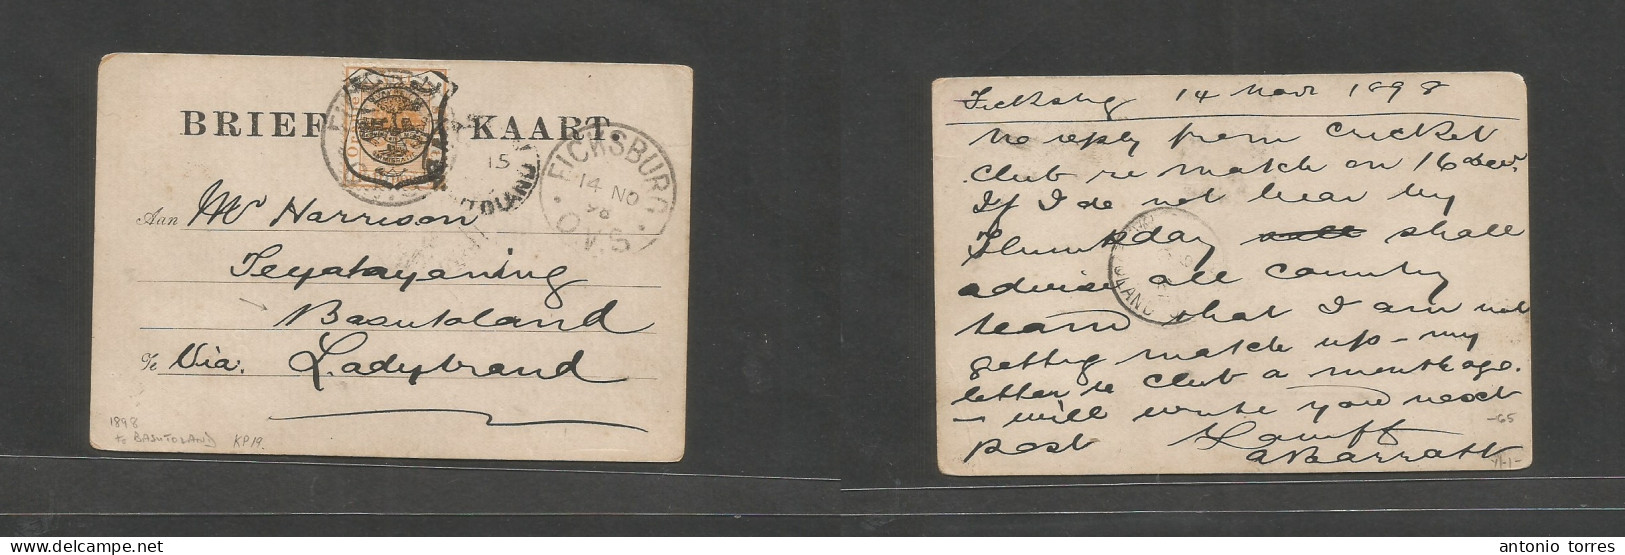 BRIEF KAART
FICKSBURG
14 NO
98
O.V.S.
15
Aan Mr Harrison
Teyateyaneng
Basutoland
Te Via. Ladybrand
1898
to BASUTOLAND KP19.
Ficksbg 14 Novr 1898
No reply from cricket
Club re match on 16 Decr.
If I do not hear by
Thursday shall
advise all country
team that I am not
getting match up - my
letter to club a month ago.
- will write you next
post
A Barratt
-65
antonio torres